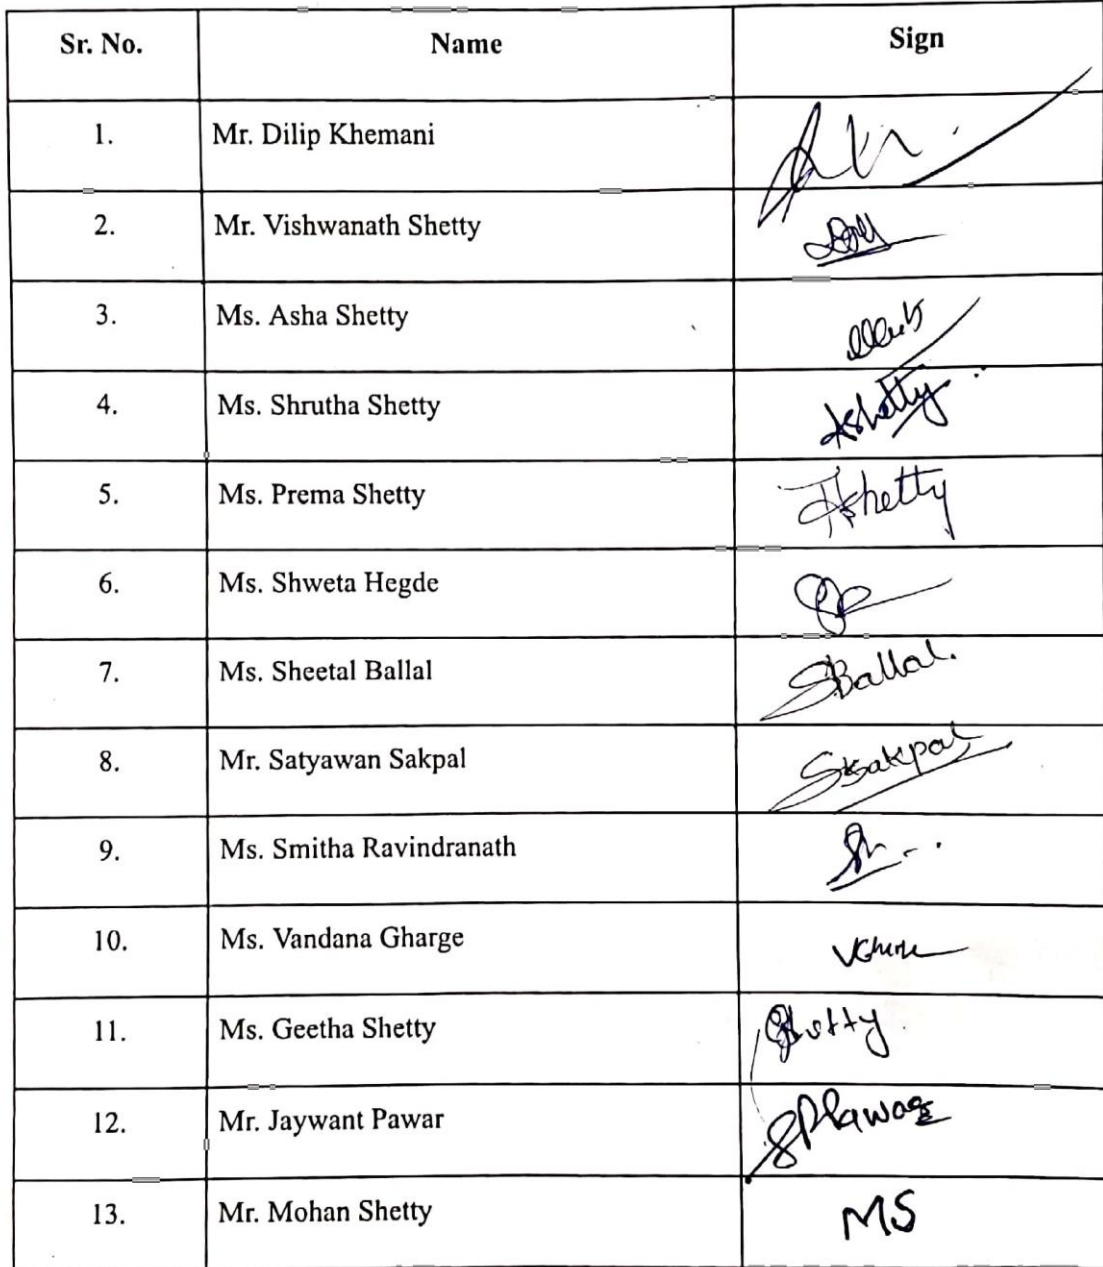 Sr. No. Name Sign
1. Mr. Dilip Khemani
2. Mr. Vishwanath Shetty
3. Ms. Asha Shetty
4. Ms. Shrutha Shetty AShetty
5. Ms. Prema Shetty PShetty
6. Ms. Shweta Hegde
7. Ms. Sheetal Ballal SBallal.
8. Mr. Satyawan Sakpal SSakpal
9. Ms. Smitha Ravindranath
10. Ms. Vandana Gharge
11. Ms. Geetha Shetty
12. Mr. Jaywant Pawar
13. Mr. Mohan Shetty MS